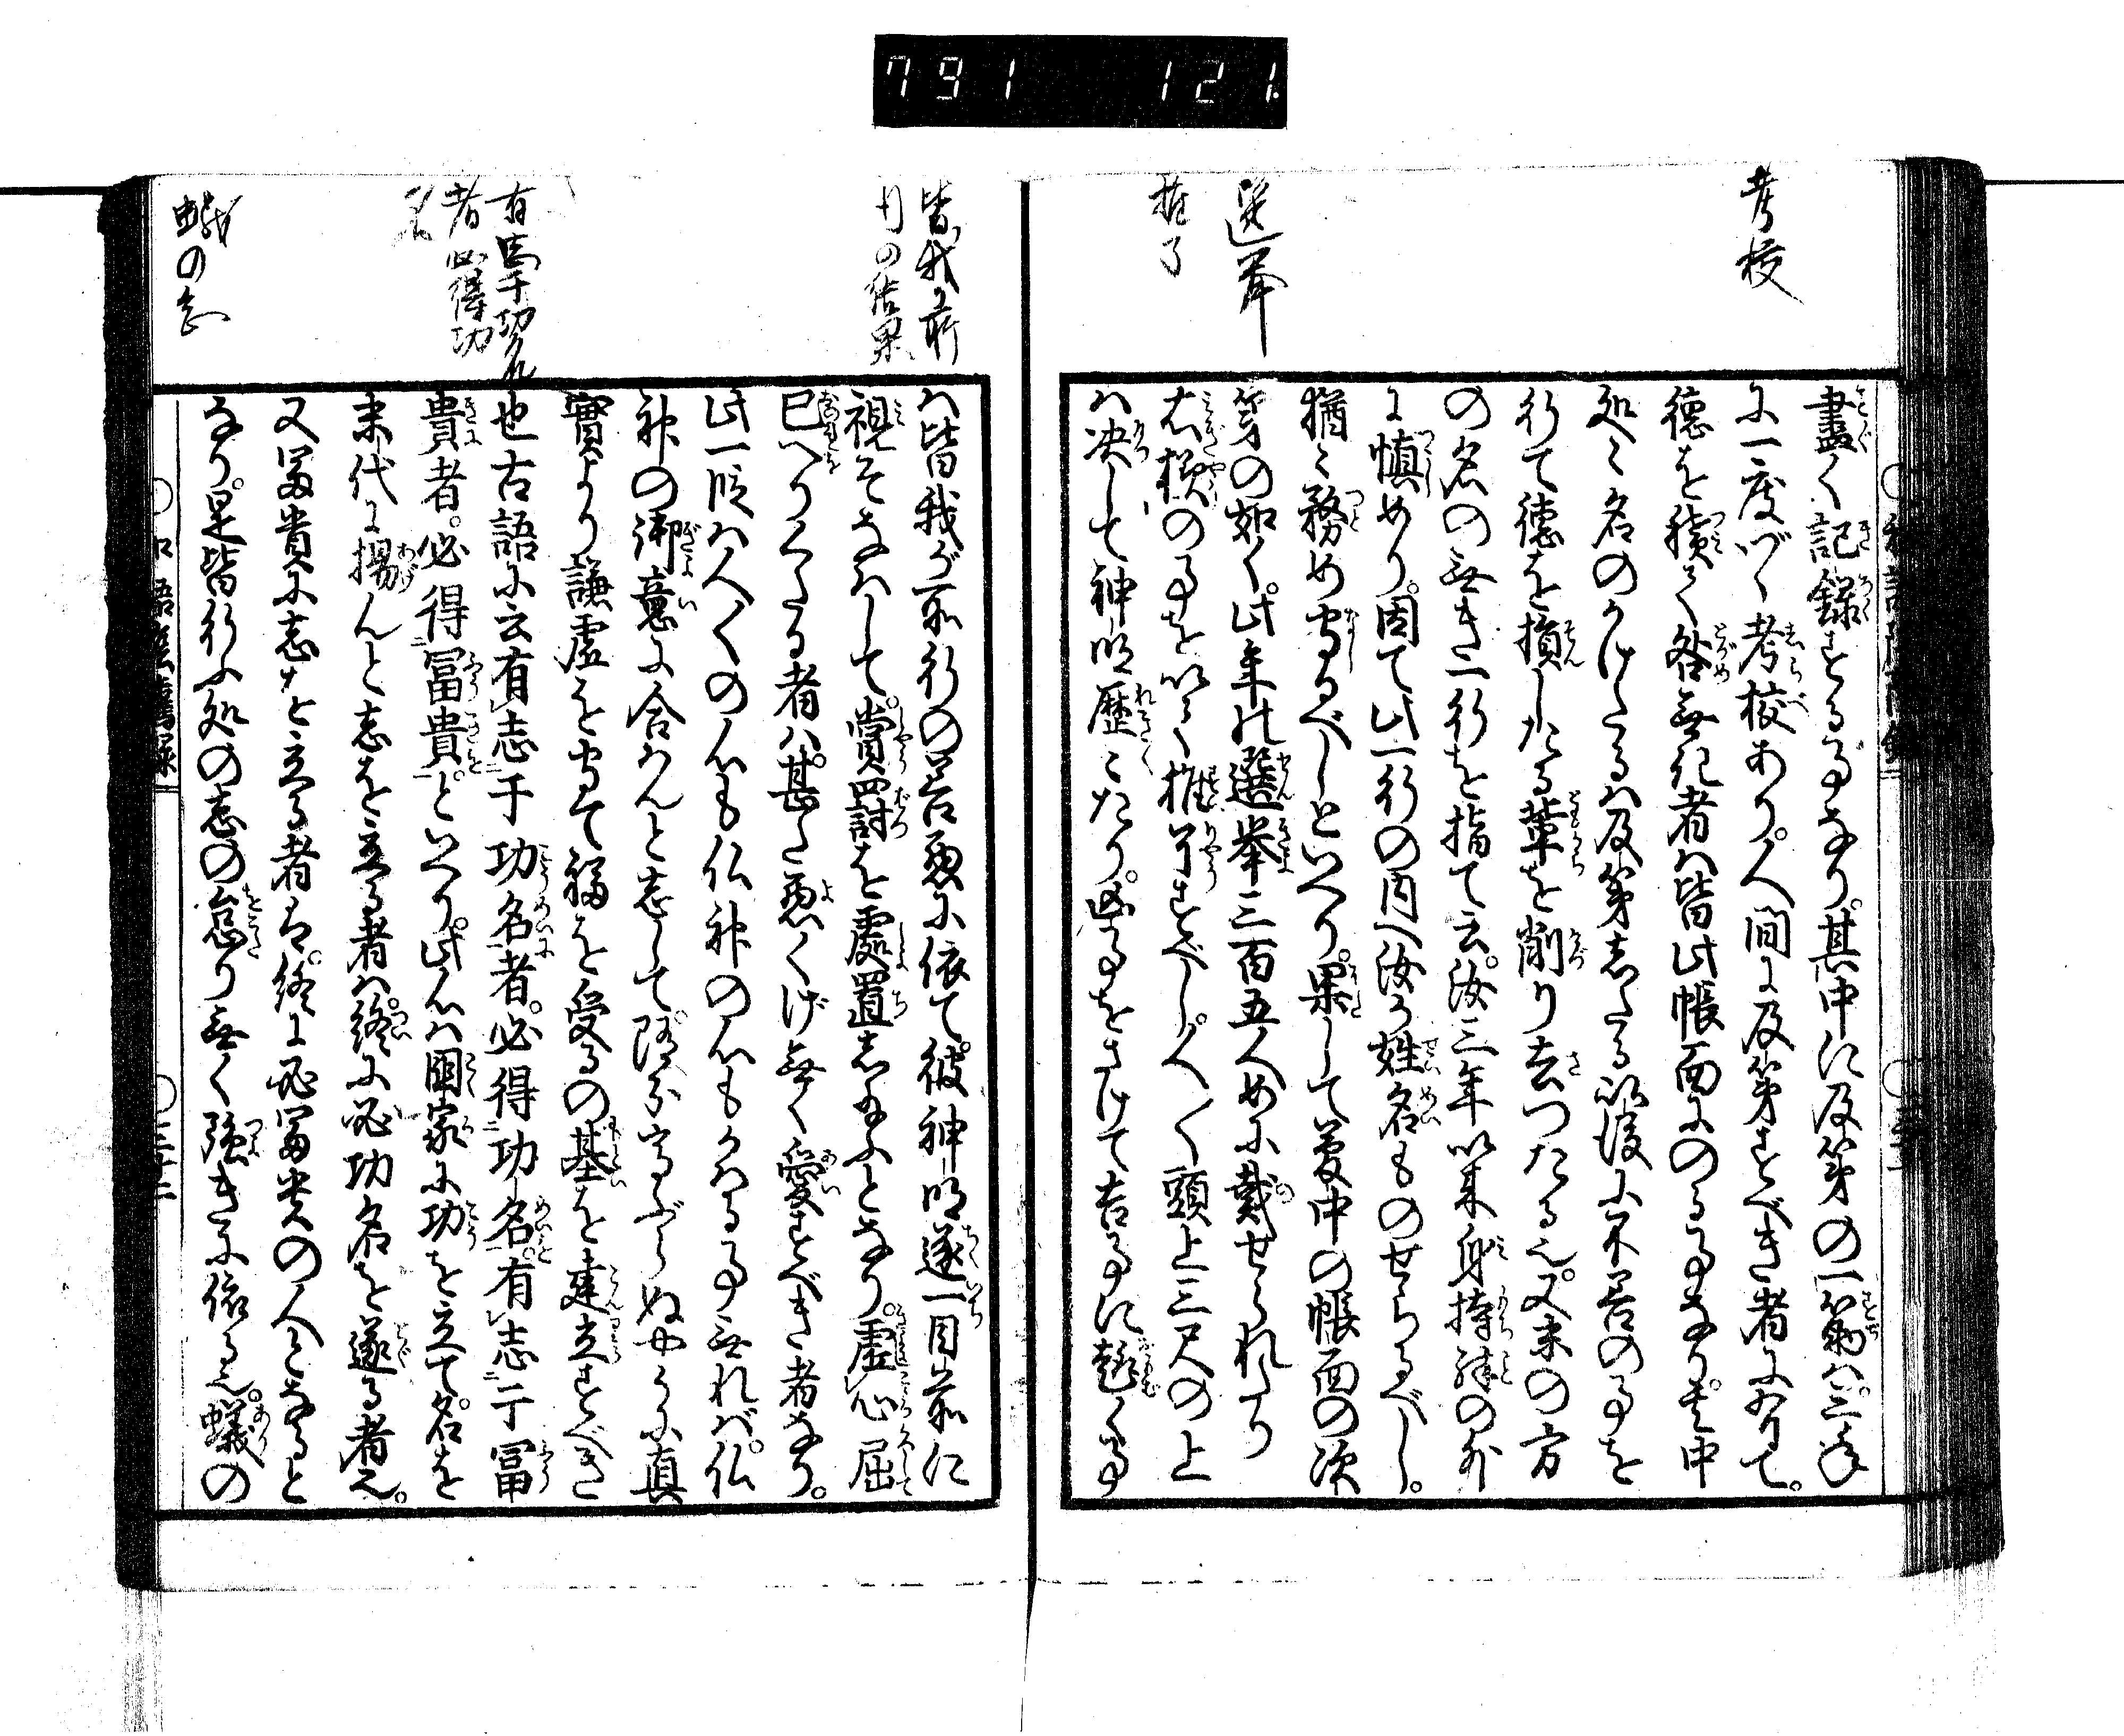 791 121
考校
選挙
推了
盡く記録するが事なり。其中に及第の一筋ハ。三年
に一度づゝ考校あり。人間に及第すべき者に有りて。
徳を積て咎無記者ハ皆此帳面にのる事なり。其中
処々名のかけたるハ及第したる以後に不善の事を
行て徳を損じたる輩を削り去つたる也。又末の方
の名の無き一行を指て云。汝三年以来身持殊の外
に慎めり。固て此一行の内へ汝が姓名ものせらるべし。
猶々務め守るべしといへり。果して夢中の帳面の次
第の如く。此年の選挙三百五人めに載せられたり
右様の事を以て推了すべし。人〱頭上三尺の上
ハ决して神明歴々たり。凶事をさけて吉事に趣く事
皆我所
行の結果
有志于功名
者必得功
名
蟻の念
ハ皆我が所行の善悪に依て。彼神明逐一目前に
視そなハして。賞罰を處置し給ふとなり。虚心屈
己へりくだる者ハ。甚だ悪くげ無く愛すべき者なり。
此一段ハ人〱の心も仏神の心もかハる事無れバ。仏
神の御意に合ハんと志して。随分高ぶらぬやうに真
實より謙虚を守て福を受るの基を建立すべき
也古語に云有志于功名者。必得功名。有志于冨
貴者。必得冨貴。といへり。此心ハ國家に功を立て。名を
末代に揚んと志を立る者ハ。終に必功名を遂る者也。
又冨貴に志を立る者ハ。終に必冨貴の人となると
なり。是皆行ふ処の志の怠り無く強きに依る也。蟻の